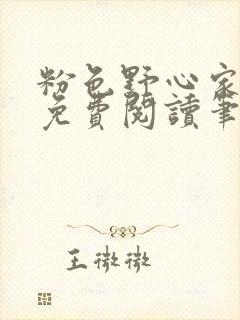 粉色野心家
免費閱讀筆
王微微